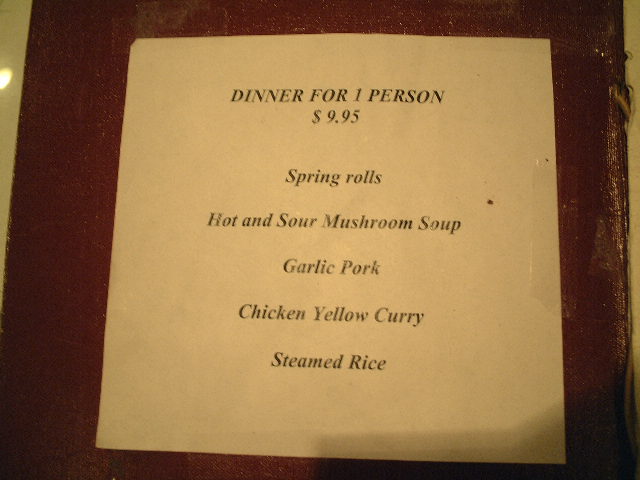 DINNER FOR 1 PERSON
$ 9.95
Spring rolls
Hot and Sour Mushroom Soup
Garlic Pork
Chicken Yellow Curry
Steamed Rice